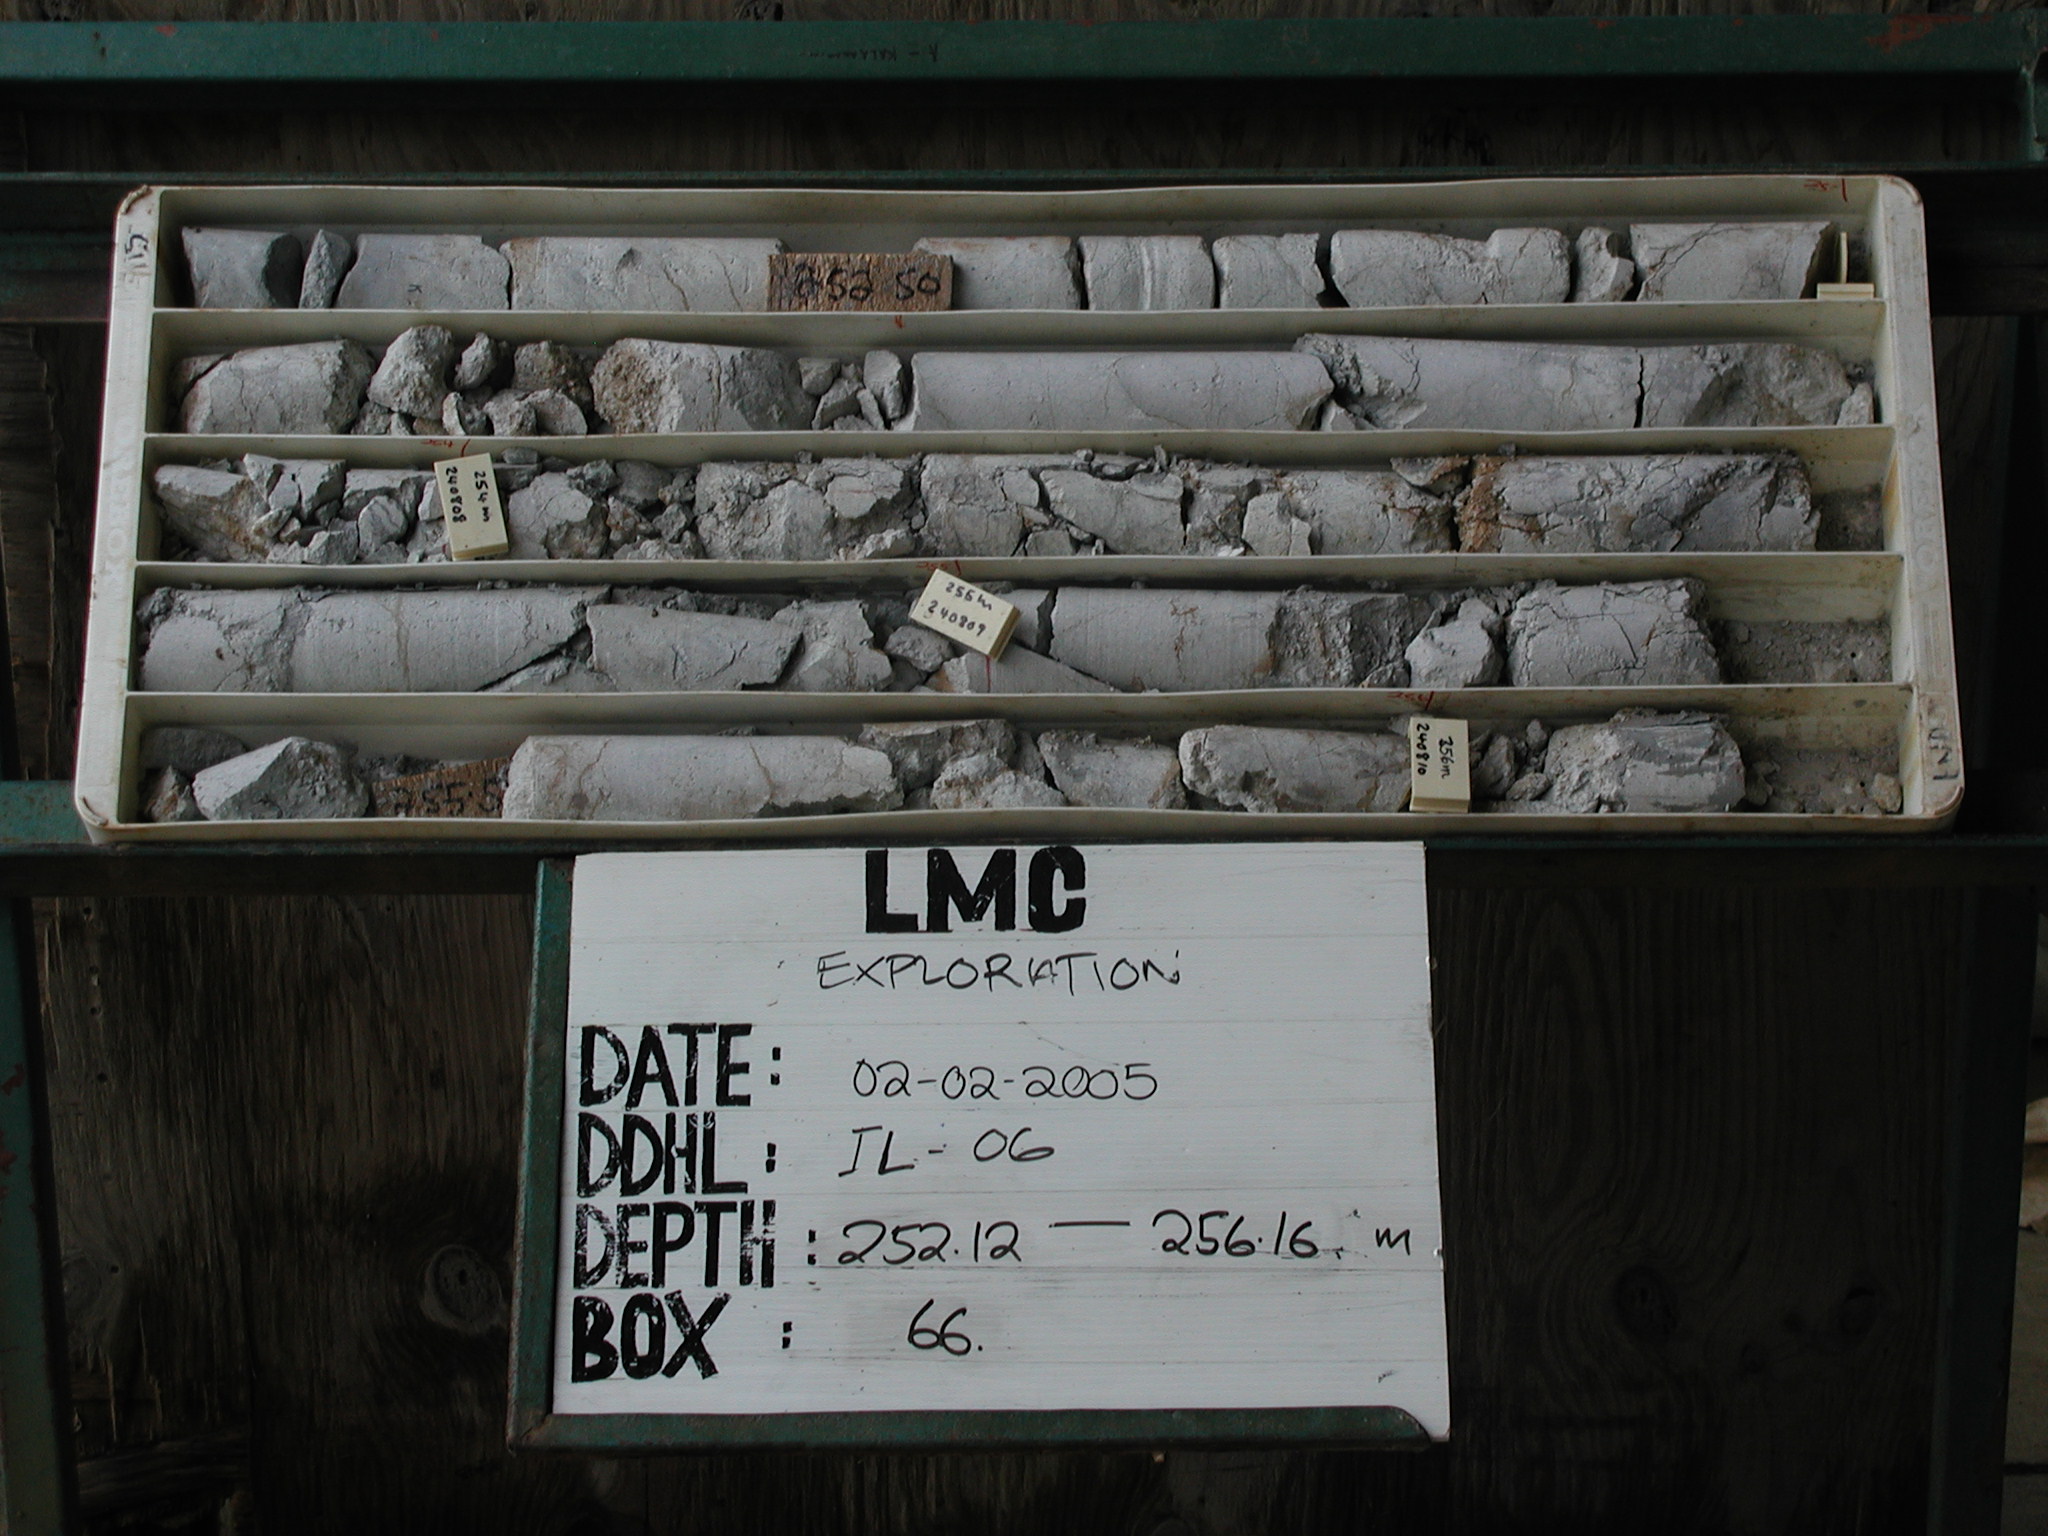 252 50
254 m
240808
255m
240809
256m
240810
LMC
EXPLORATION
DATE: 02-02-2005
DDHL: IL-06
DEPTH: 252.12 — 256.16. m
BOX: 66.